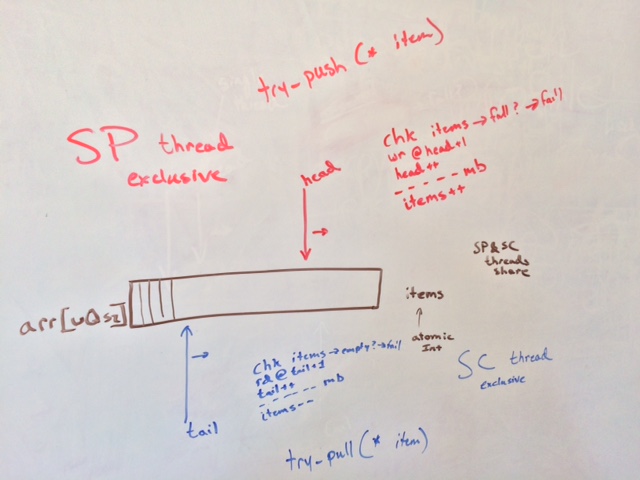 try-push (* item)
SP thread
exclusive
head
chk items → full? → fail
wr @ head+1
head++
----- mb
items++
SP&SC
threads
share
arr[uQsz]
items
atomic
Int
tail
chk items → empty? → fail
rd @ tail+1
tail++
------ mb
items--
SC thread
exclusive
try-pull (* item)